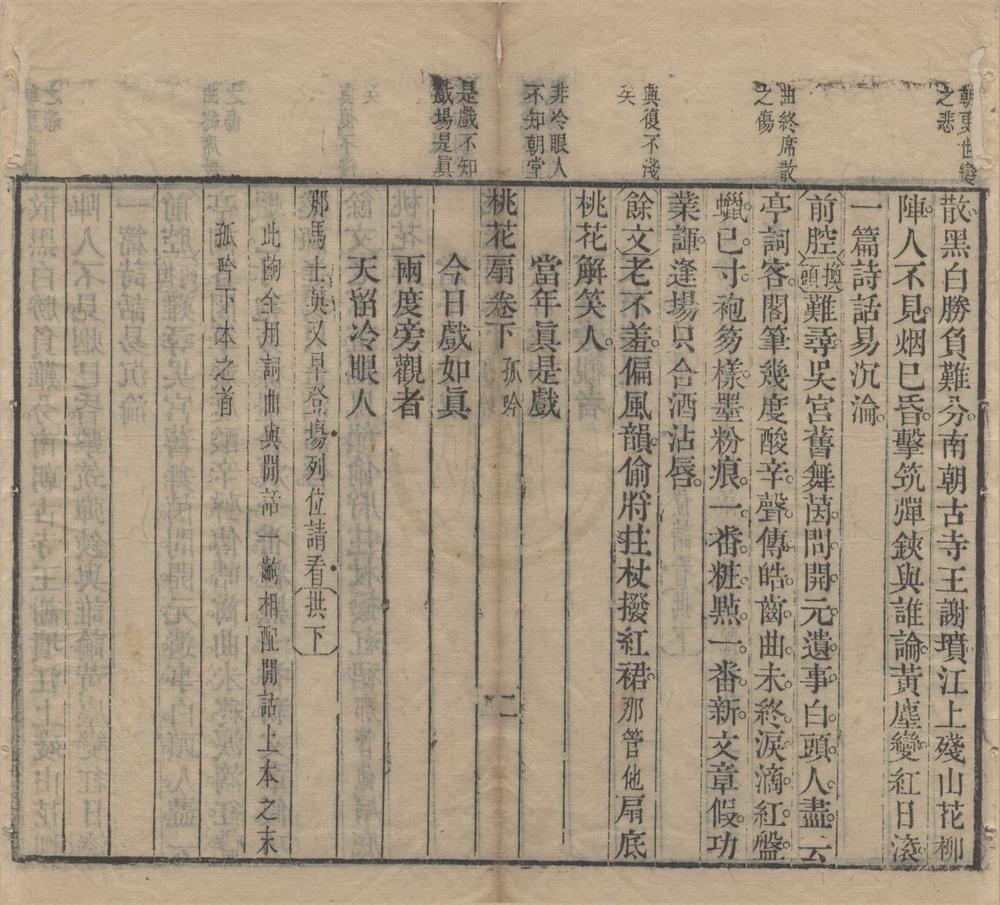 朝更世變
之悲
曲終席散
之傷
興復不淺
矣
非冷眼人
不知朝堂
是戲不知
戲場是眞
散黑白勝負難分南朝古寺王謝墳江上殘山花柳
陣人不見烟已昏擊筑彈鋏與誰論黃塵變紅日滚
一篇詩話易沉淪
前腔換頭難尋吳宮舊舞茵問開元遺事白頭人盡云
亭詞客閣筆幾度酸辛聲傳皓齒曲未終淚滴紅盤
蠟已寸袍笏樣墨粉痕一番粧點一番新文章假功
業諢逢場只合酒沾唇
餘文老不羞偏風韻偷將拄杖撥紅裙那管他扇底
桃花解笑人
當年眞是戲
桃花扇卷下 孤吟 二
今日戲如眞
兩度旁觀者
天留冷眼人
那馬士英又早登塲列位請看拱下
此齣全用詞曲與閒話一齣相配閒話上本之末
孤吟下本之首